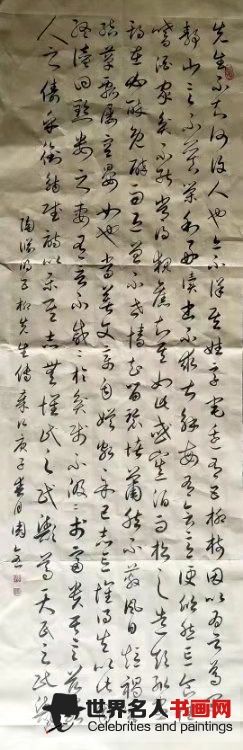 先生不知何许人也亦不详其姓字宅边有五柳树因以为号焉闲
静少言不慕荣利好读书不求甚解每有会意便欣然忘食性
嗜酒家贫不能常得亲旧知其如此或置酒而招之造饮辄尽
期在必醉既醉而退曾不吝情去留环堵萧然不蔽风日短褐穿
结箪瓢屡空晏如也常著文章自娱颇示己志忘怀得失以此自
终赞曰黔娄之妻有言不戚戚于贫贱不汲汲于富贵其言兹若
人之俦乎衔觞赋诗以乐其志无怀氏之民欤葛天氏之民欤
陶渊明五柳先生传 庚子春月周
世界名人书画网
Celebrities and paintings